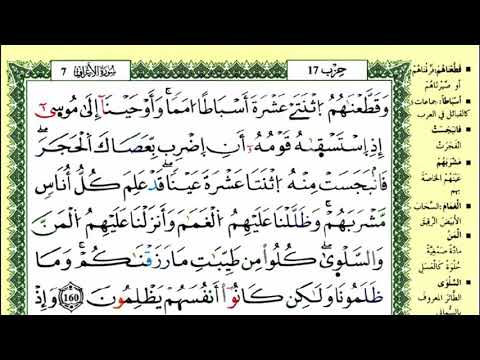 حِزْب 17
سُورَةُ الأَعْرَافِ 7
وَقَطَّعْنَٰهُمُ اُ۪ثْنَتَےْ عَشْرَةَ أَسْبَاطًا اُمَمًاۖ وَأَوْحَيْنَآ إِلَىٰ مُوسَىٰٓ
إِذِ اِ۪سْتَسْقَىٰهُ قَوْمُهُۥٓ أَنِ اِ۪ضْرِب بِّعَصَاكَ اَ۬لْحَجَرَۖ
فَانۢبَجَسَتْ مِنْهُ اُ۪ثْنَتَا عَشْرَةَ عَيْنًاۖ قَدْ عَلِمَ كُلُّ أُنَاسٍ
مَّشْرَبَهُمْۖ وَظَلَّلْنَا عَلَيْهِمُ اُ۬لْغَمَٰمَ وَأَنزَلْنَا عَلَيْهِمُ اُ۬لْمَنَّ
وَالسَّلْوَىٰۖ كُلُوا۟ مِن طَيِّبَٰتِ مَا رَزَقْنَٰكُمْۖ وَمَا
ظَلَمُونَا وَلَٰكِن كَانُوٓا۟ أَنفُسَهُمْ يَظْلِمُونَ 160 وَإِذْ
قَطَّعْنَاهُمُ: فرَّقْنَاهُم
أو صيّرناهم
أَسْبَاطًا: جماعات
كالقبائل في العرب
فَانبَجَسَتْ
انفجرت
مَشْرَبَهُمْ
عينهم الخاصة
بهم
الْغَمَامَ: السحاب
الأبيض الرقيق
الْمَنَّ
مادة صمغية
حلوة كالعسل
السَّلْوَى
الطائر المعروف
بالسماني